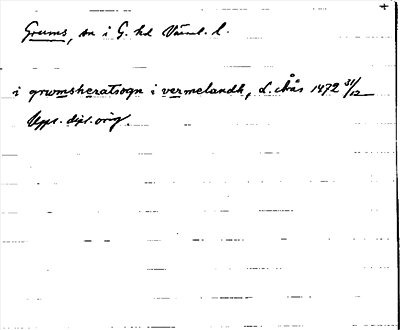 Grums, sn i G. hd Värml. l.
i grwmsheratsogn i vermelandh, L. Aas 1472 31/12
Uppl. dipl. orig.